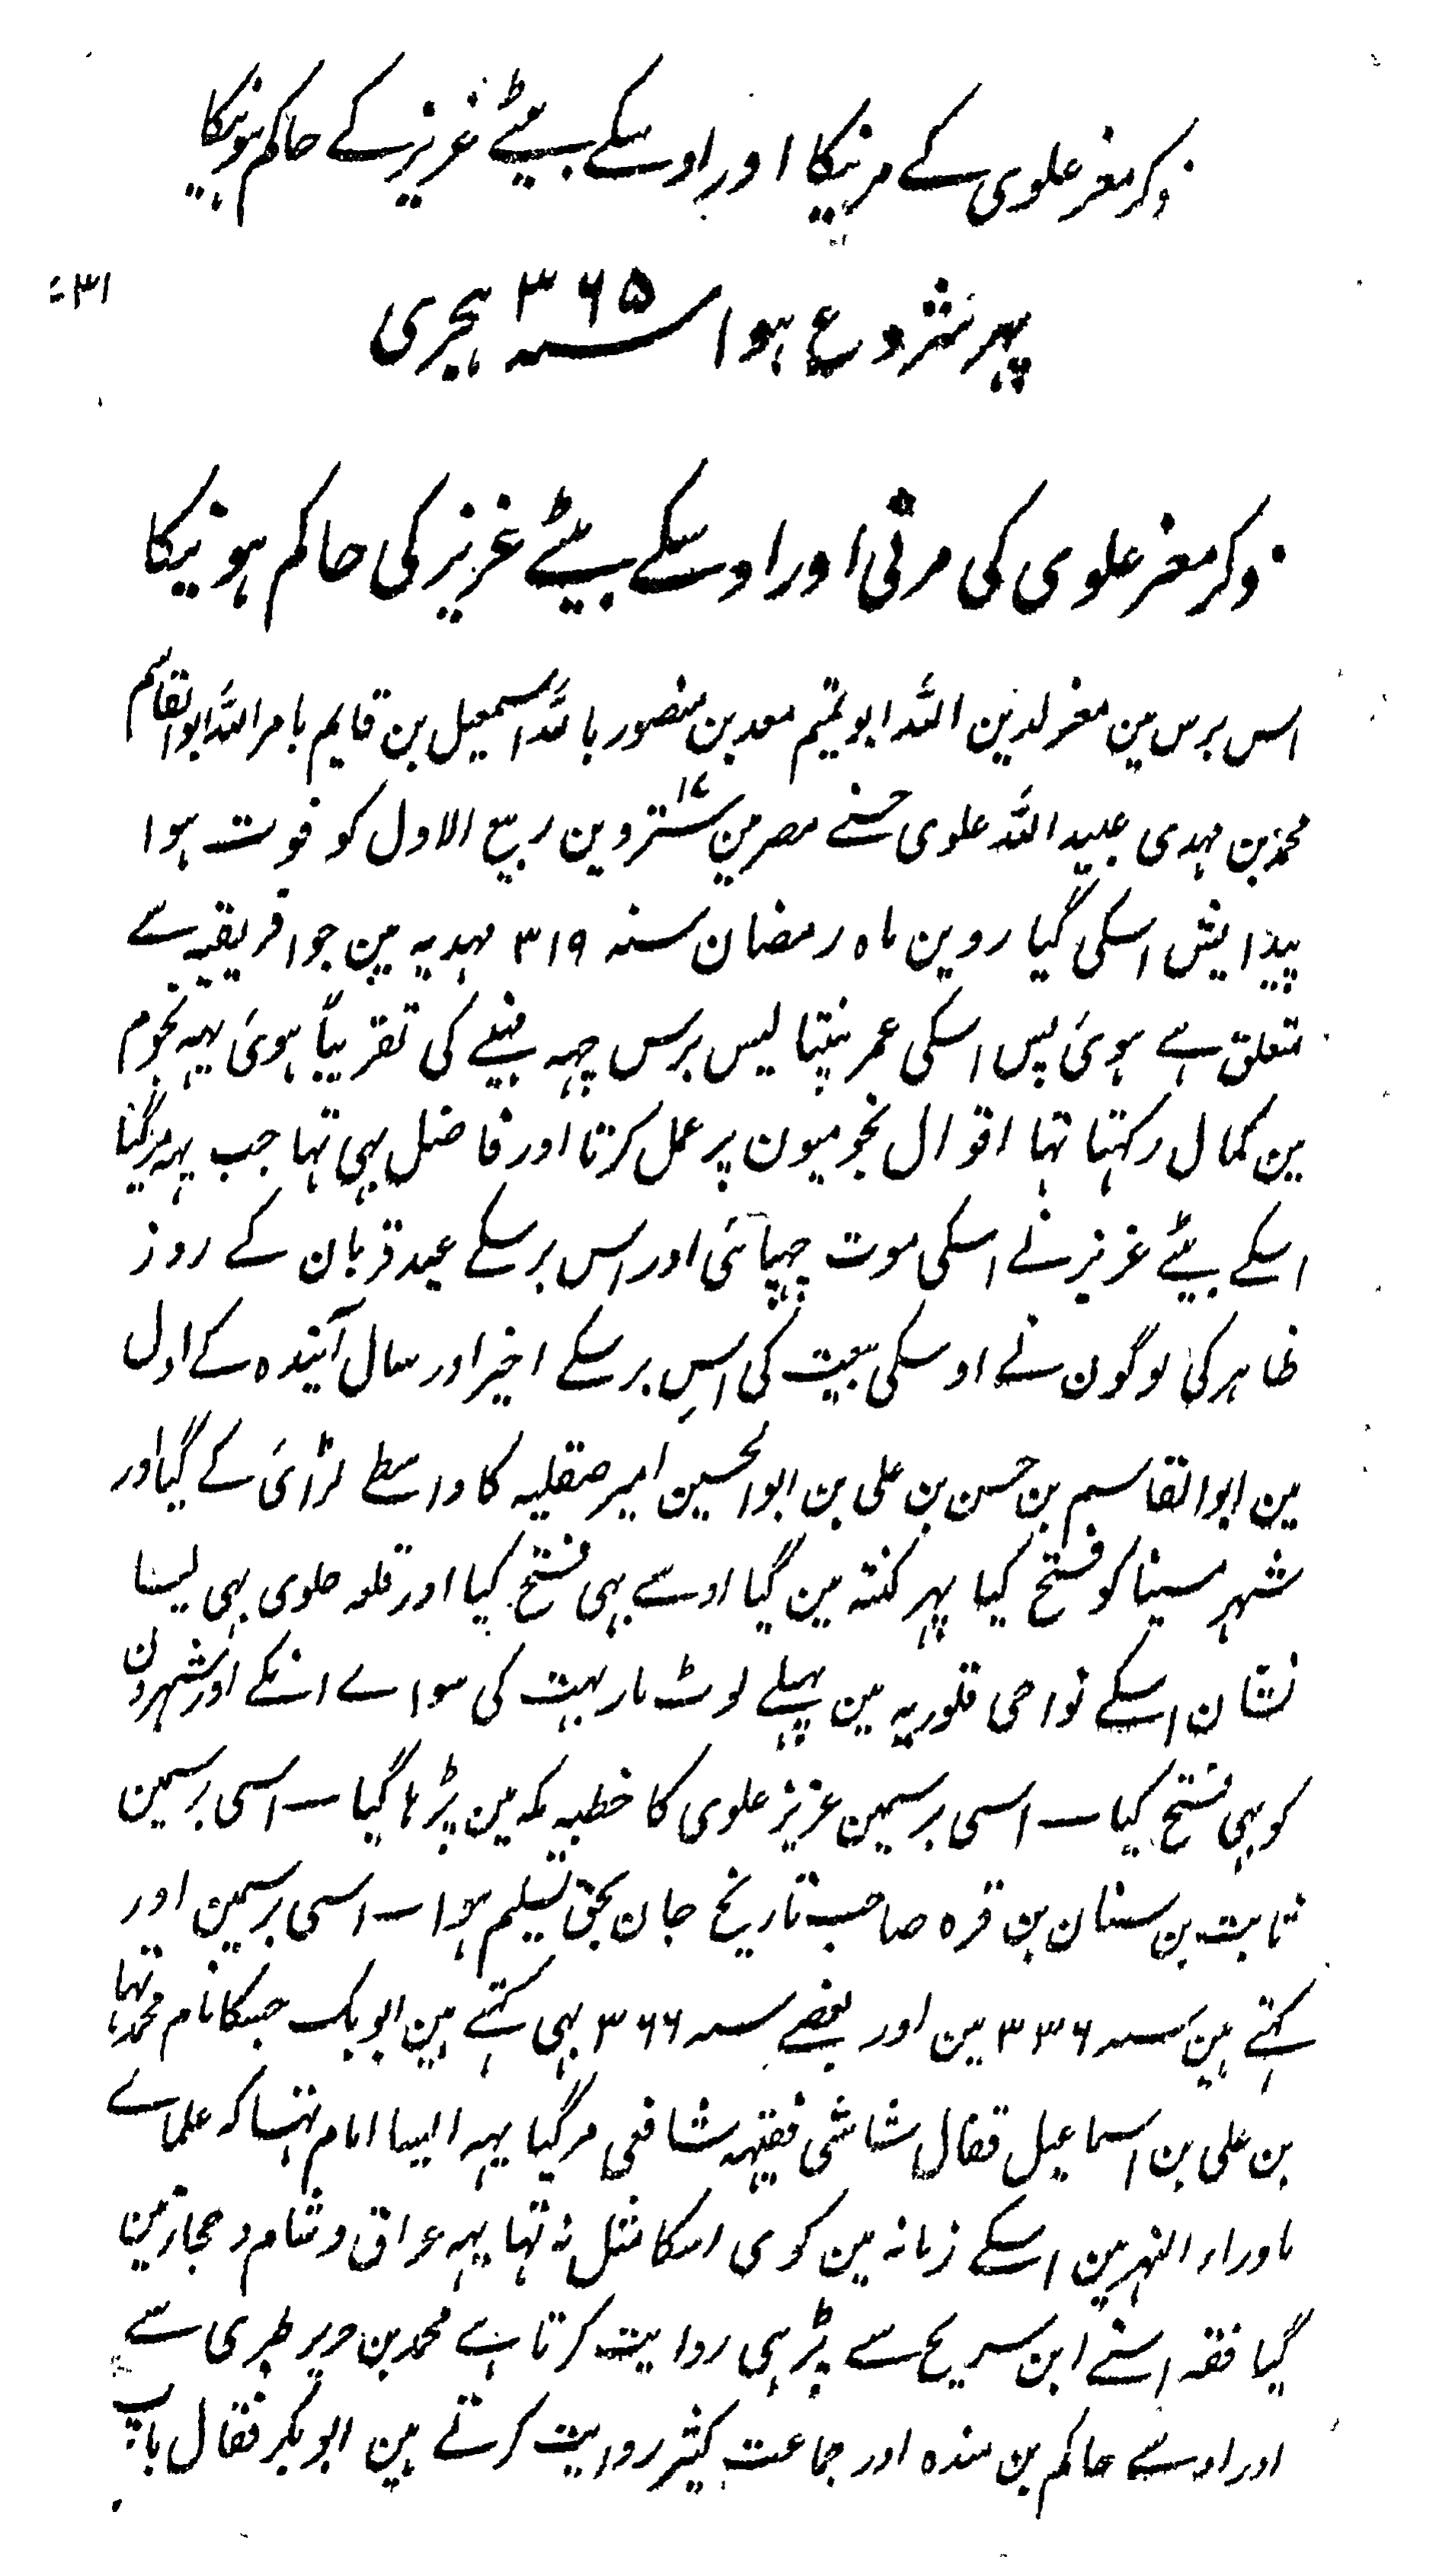 ذکر معز علوی کے مرنیکا اور اوسکے بیٹے عزیز کے حاکم ہونیکا
۳۱=
پہر شروع ہوا سنہ ۳۶۵ ہجری
ذکر معز علوی کی مرنی اور اوسکے بیٹے عزیز کی حاکم ہونیکا
اس برس مین معز لدین اللہ ابو تمیم معد بن منصور باللہ اسمعیل بن قایم بامر اللہ ابو القاسم
محمد بن مہدی عبید اللہ علوی حسنے مصر مین ۱۷ ستروین ربیع الاول کو فوت ہوا
پیدایش اسکی گیاروین ماہ رمضان سنہ ۳۱۹ مہدیہ مین جو افریقیہ سے
متعلق ہے ہوئی پس اسکی عمر پنتالیس برس چہہ مہینے کی تقریباً ہوئی یہہ نجوم
مین کمال رکہتا تہا اقوال نجومیون پر عمل کرتا اور فاضل بہی تہا جب یہہ مرگیا
اسکے بیٹے عزیز نے اسکی موت چہپائی اور اس برسکے عید قربان کے روز
ظاہر کی لوگون نے اوسکی بیعت کی اس برسکے اخیر اور سال آیندہ کے اول
مین ابو القاسم بن حسن بن علی بن ابو الحسین امیر صقلیہ کا واسطے لڑائی کے گیا اور
شہر مسینا کو فتح کیا پہر کنتہ مین گیا اوسے بہی فتح کیا اور قلعہ جلوی بہی لیا
نشان اسکے نواحی قلوریہ مین پہلے لوٹ مار بہت کی سواے انکے اور شہرون
کو بہی فتح کیا ـ اسی برسمین عزیز علوی کا خطبہ مکہ مین پڑہا گیا ـ اسی برسمین
ثابت بن سنان بن قرہ صاحب تاریخ جان بحق تسلیم ہوا ـ اسی برسمین اور
کہتے ہین سنہ ۳۳۶ مین اور بعضے سنہ ۳۶۶ بہی کہتے ہین ابو بک جسکا نام محمد تہا
بن علی بن اسماعیل قفال شاشی فقیہہ شافعی مرگیا یہہ ایسا امام تہا کہ علماے
ماوراء النہر مین اسکے زمانہ مین کوی اسکا مثل نہ تہا یہہ عراق و شام و حجاز مین
گیا فقہ اسنے ابن سریح سے پڑہی روایت کرتا ہے محمد بن جریر طبری سے
اور اوسے حاکم بن مندہ اور جماعت کثیر روایت کرتے ہین ابو بکر قفال باپ